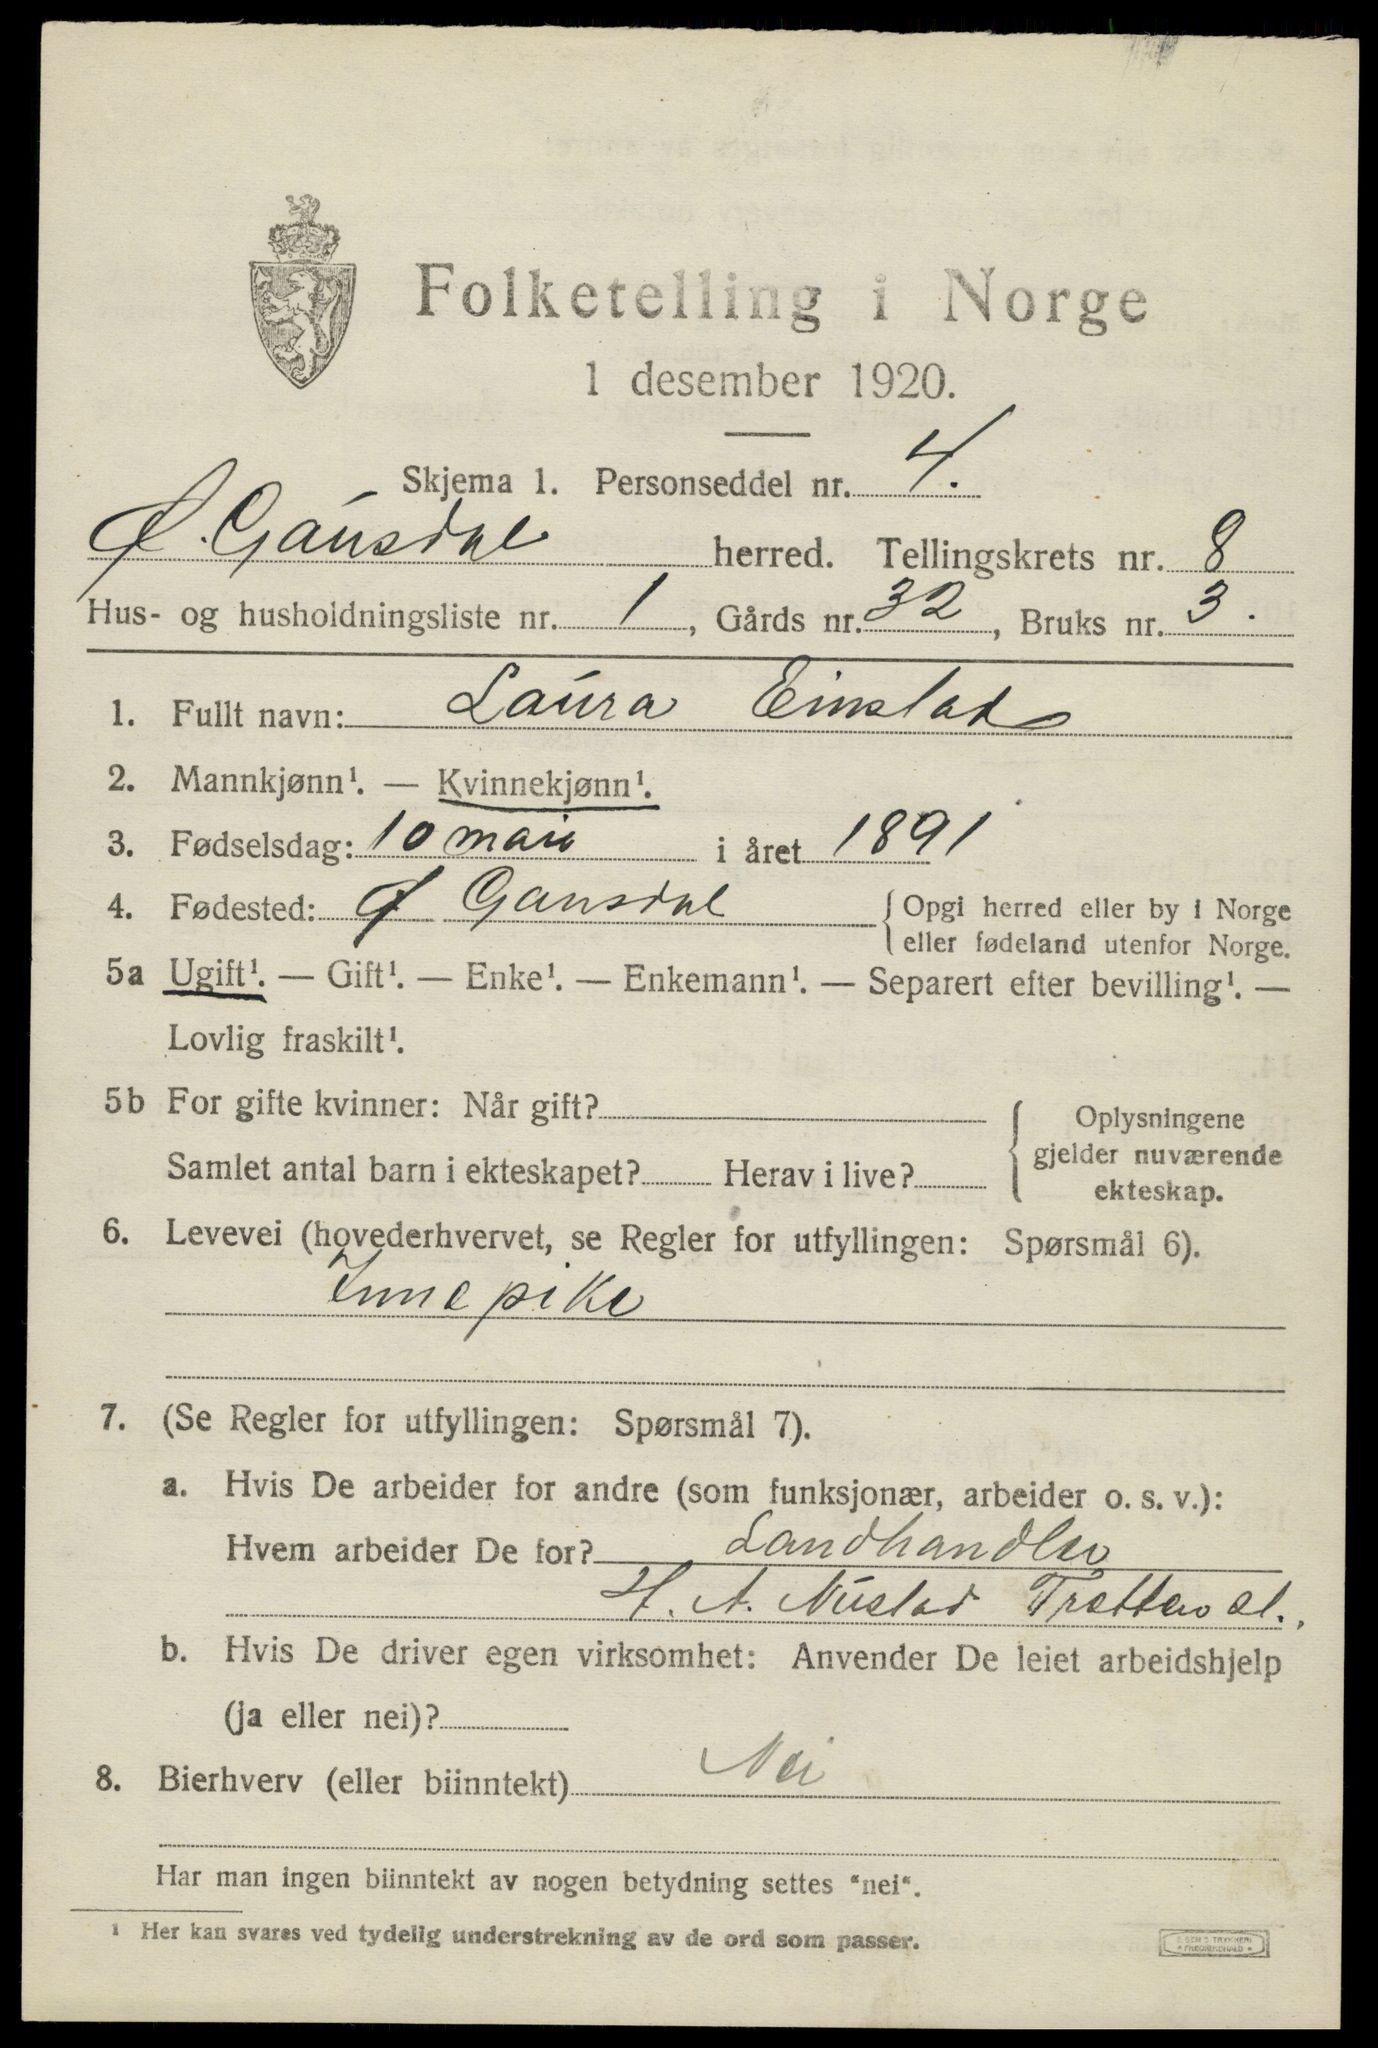 Folketelling i Norge
1 desember 1920.
Skjema 1. Personseddel nr. 4.
Ø. Gausdal herred. Tellingskrets nr. 8
Hus- og husholdningsliste nr. 1, Gårds nr. 32, Bruks nr. 3.
1. Fullt navn: Laura Einstad
2. Mannkjønn¹. — Kvinnekjønn¹.
3. Fødselsdag: 10 mai i året 1891
4. Fødested: Ø Gausdal { Opgi herred eller by i Norge
eller fødeland utenfor Norge.
5a Ugift¹. — Gift¹. — Enke¹. — Enkemann¹. — Separert efter bevilling¹. —
Lovlig fraskilt¹.
5b For gifte kvinner: Når gift? { Oplysningene
gjelder nuværende
Samlet antal barn i ekteskapet? Herav i live? ekteskap.
6. Levevei (hovederhvervet, se Regler for utfyllingen: Spørsmål 6).
Innepike
7. (Se Regler for utfyllingen: Spørsmål 7).
a. Hvis De arbeider for andre (som funksjonær, arbeider o. s. v.):
Hvem arbeider De for? Landhandler
H. A. Nustad Tretten st.,
b. Hvis De driver egen virksomhet: Anvender De leiet arbeidshjelp
(ja eller nei)?
8. Bierhverv (eller biinntekt) Nei
Har man ingen biinntekt av nogen betydning settes "nei".
¹ Her kan svares ved tydelig understrekning av de ord som passer.
TRYKKERI
FREDRIKSHALD